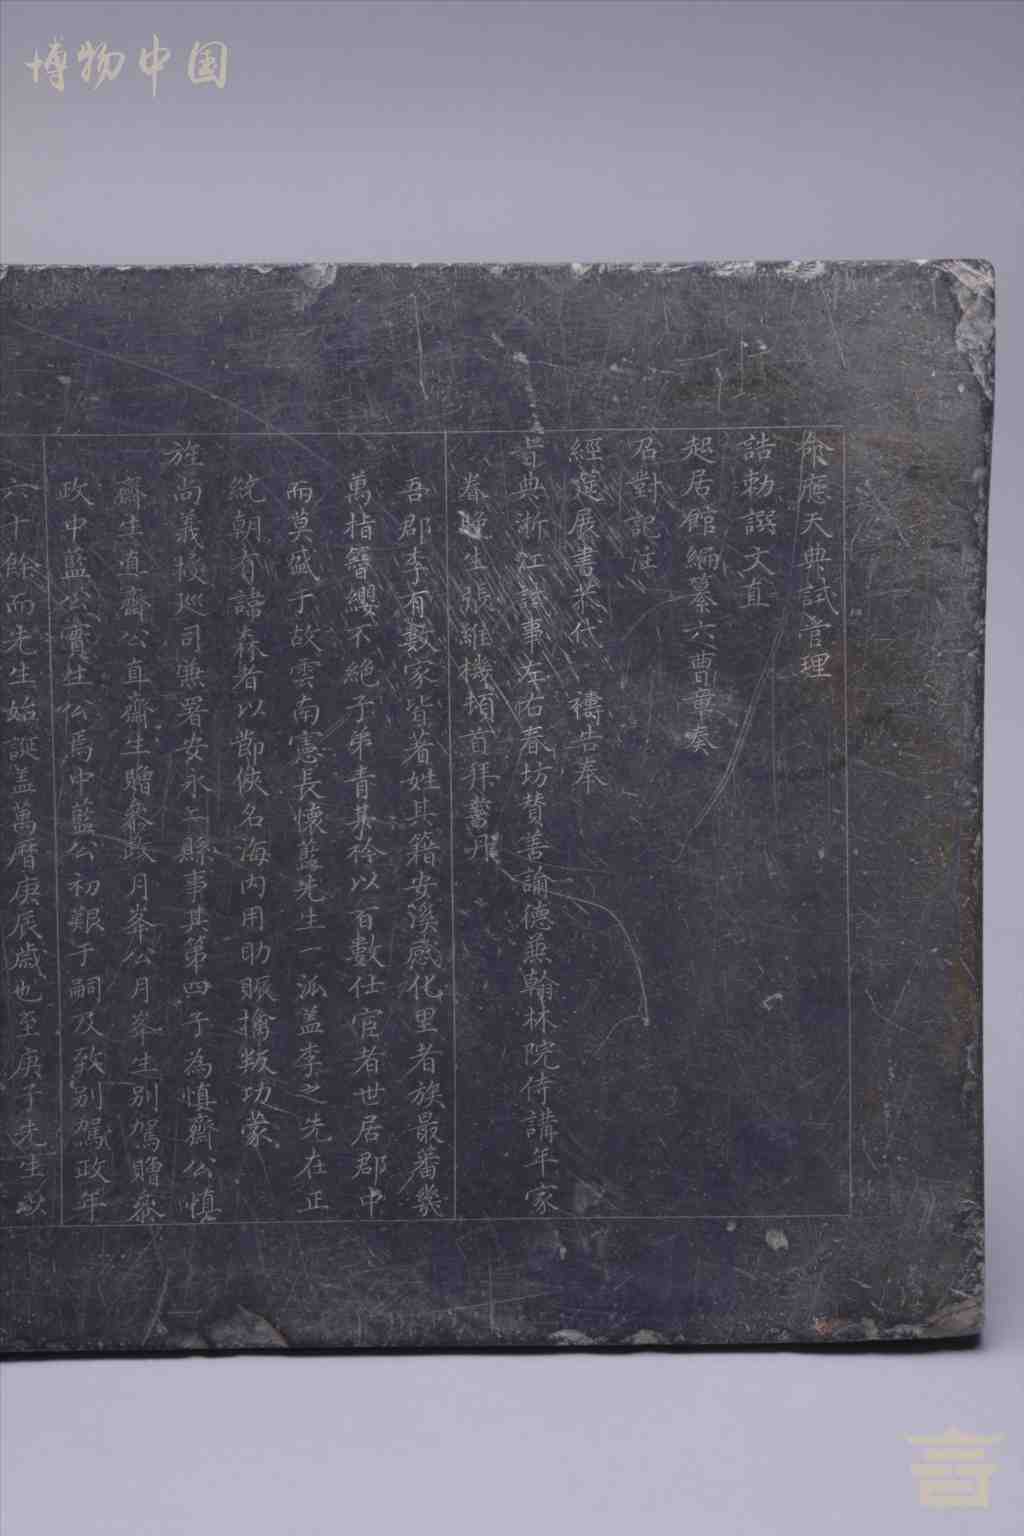 博物中国
命應天典試管理
誥勅譔文直
起居館編纂六曹章奏
召對記注
經筵展書米代 禱告奉
旨典浙江試事左右春坊贊善諭德兼翰林院侍講年家
眷晚生張維機頓首拜書丹
吾郡李有數家皆著姓其籍安溪感化里者族最蕃幾
萬指簪纓不絶子弟青其衿以百數仕宦者世居郡中
而莫盛于故雲南憲長懷藍先生一派盖李之先在正
統朝有諱森者以節俠名海內用助賑擒叛功蒙
旌尚義授巡司兼署安永二縣事其第四子為慎齋公慎
齋生直齋公直齋生贈叅政月峯公月峯生別駕贈叅
政中藍公實生公焉中藍公初艱于嗣及致別駕政年
六十餘而先生始誕盖萬曆庚辰歲也至庚子先生